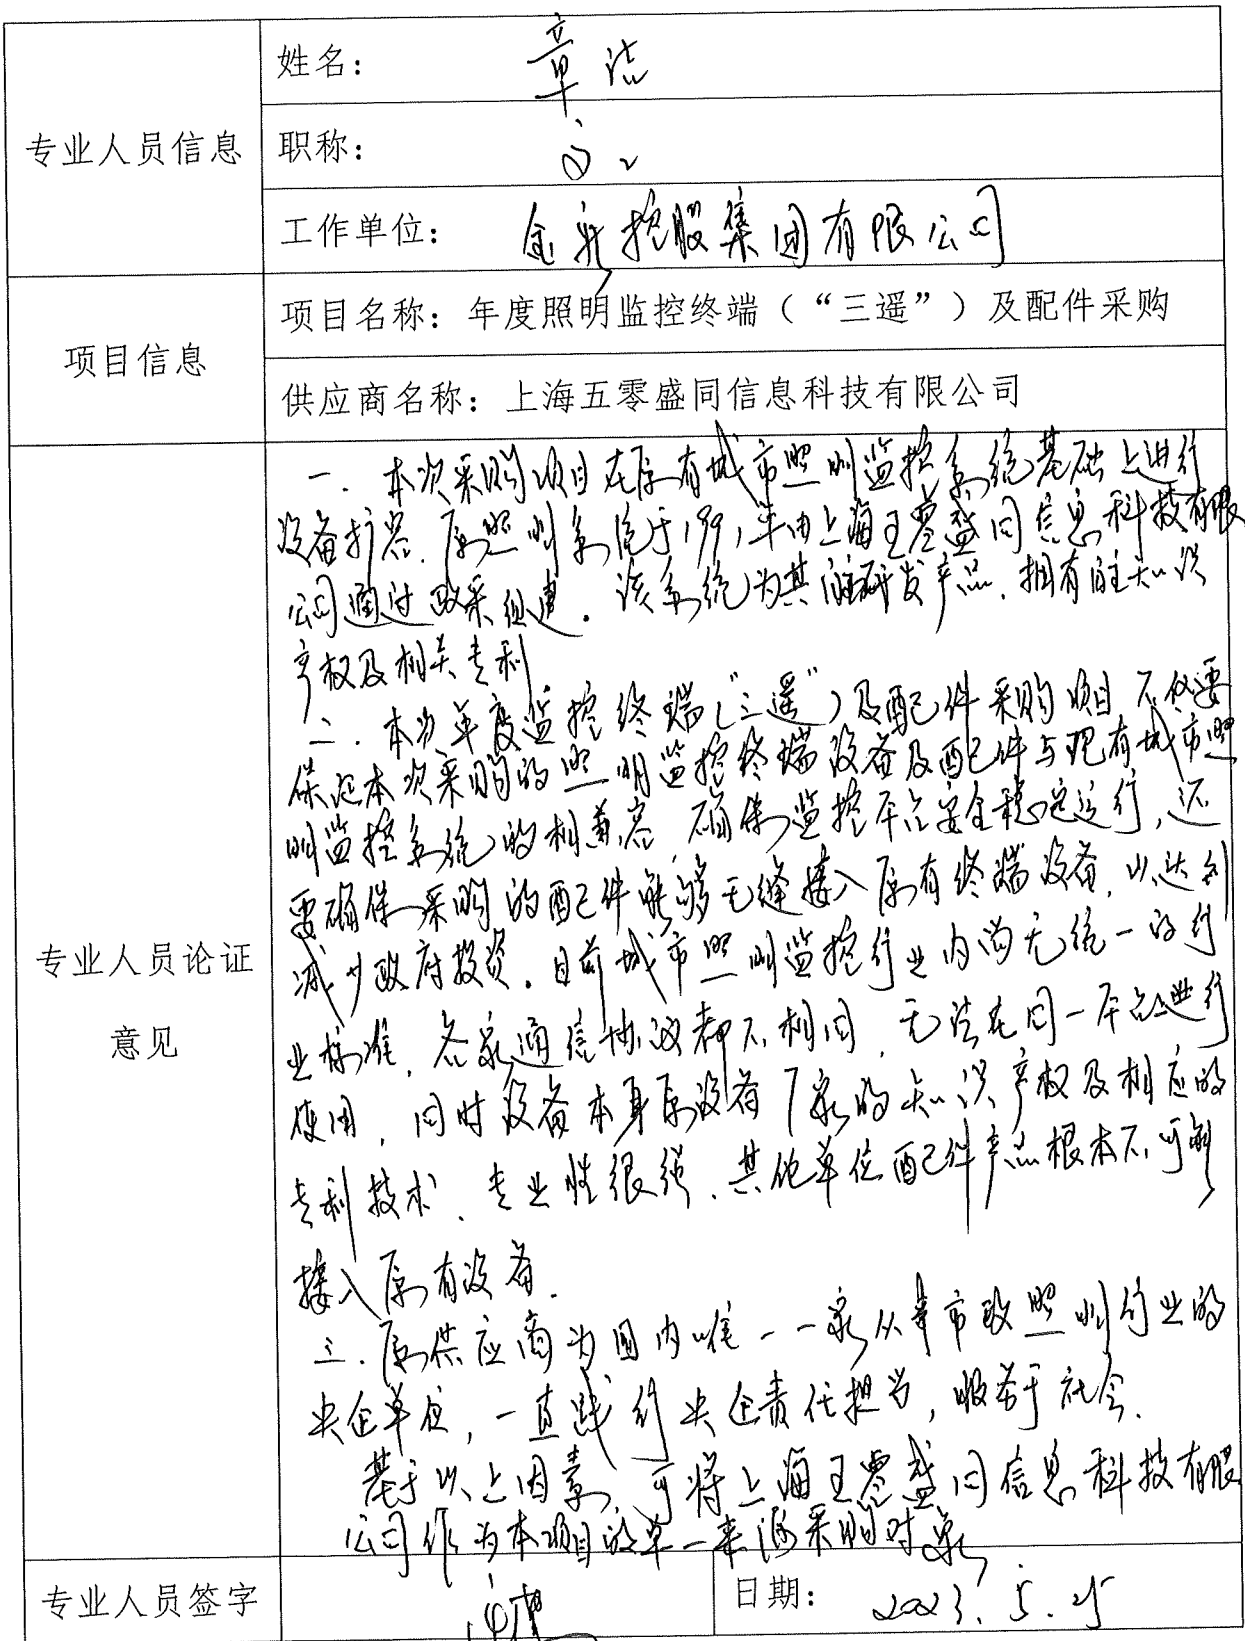 专业人员信息
姓名： 章洁
职称： 高工
工作单位： 控股集团有限公司
项目信息
项目名称：年度照明监控终端（“三遥”）及配件采购
供应商名称：上海五零盛同信息科技有限公司
专业人员论证
意见
一. 本次采购项目在原有城市照明监控系统基础上进行
设备扩容. 原照明系统于1991年由上海五零盛同信息科技有限
公司通过政采组建. 该系统为其自主研发产品. 拥有自主知识
产权及相关专利
二. 本次年度监控终端（“三遥”）及配件采购项目不仅要
保证本次采购的照明监控终端设备及配件与现有城市照
明监控系统的相兼容 确保监控平台安全稳定运行, 还
要确保采购的配件能够无缝接入原有终端设备, 以达到
减少政府投资. 目前城市照明监控行业内尚无统一的行
业标准, 各家通信协议都不相同, 无法在同一平台进行
使用, 同时设备本身原设备厂家的知识产权及相应的
专利技术、专业性很强、其他单位配件产品根本不可能
接入原有设备.
三. 原供应商为国内唯一一家从事市政照明行业的
央企单位, 一直践行央企责任担当, 服务于社会.
基于以上因素, 可将上海五零盛同信息科技有限
公司作为本项目的单一来源采购对象
专业人员签字
日期： 2023.5.25